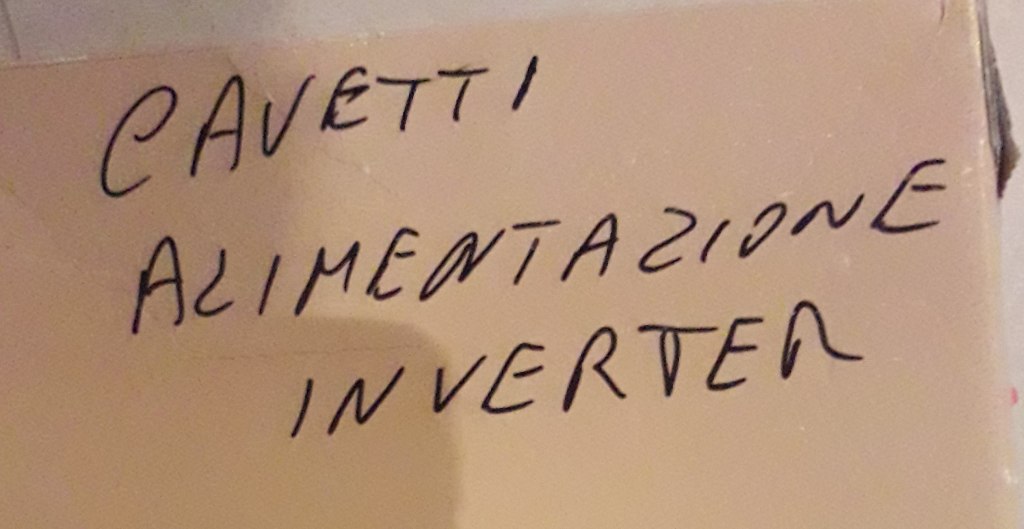 CAVETTI
ALIMENTAZIONE
INVERTER